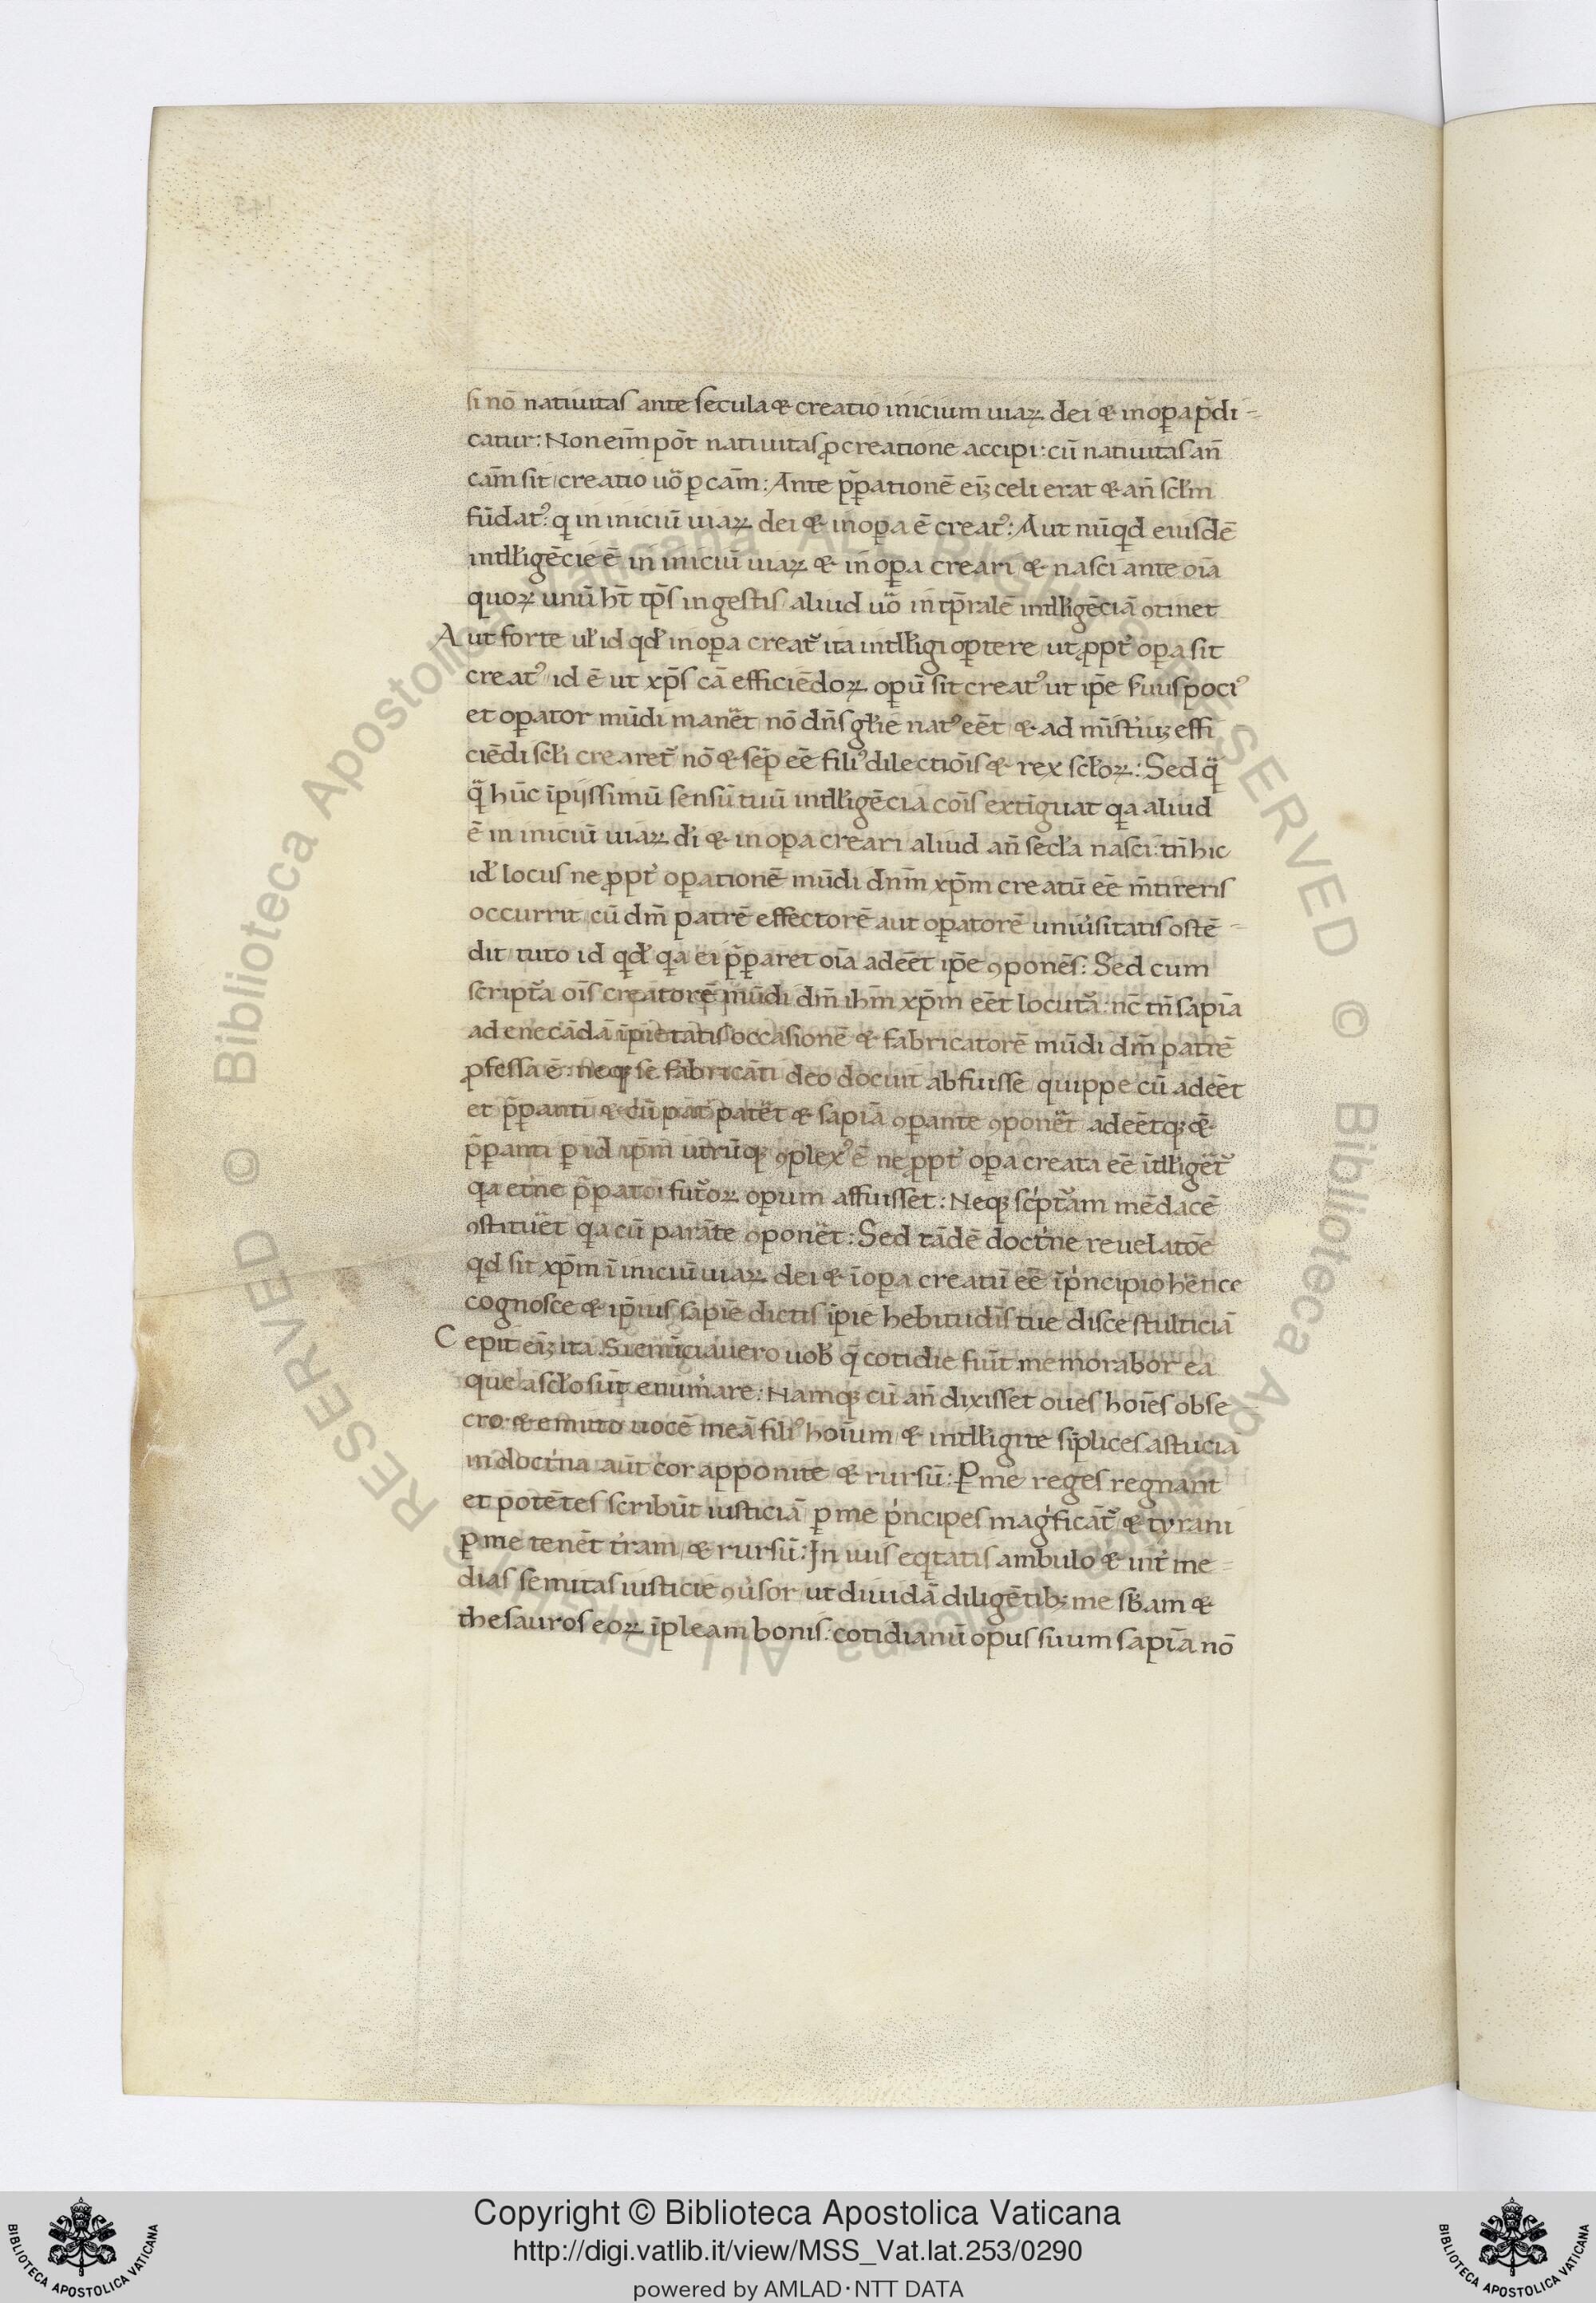 si nō natiuitas ante secula & creatio inicium uiaꝝ dei & in oꝑa p̄di-
catur: Non eīm pōt natiuitas ꝓ creatione accipi: cū natiuitas an̄
cām sit creatio uo̎ ꝑ cām: Ante p̄ꝑationē eīꝫ celi erat & an̄ scłm
fūdatꝰ: q̨ in iniciū uiaꝝ dei & in oꝑa ē creatꝰ: Aut nūqd eiusdē
intełłigēcie ē in iniciū uiaꝝ & in oꝑa creari & nasci ante oīa
quoꝝ unū ht̄ tp̄s in gestis aliud uo̎ intp̄ralē intłłigēciā ꝯtinet
Aut forte uł id qđ in oꝑa creat᷑ ita intłłigi oꝑtere ut ꝓpt᷑ oꝑa sit
creatꝰ id ē ut xp̄s cā efficiēdoꝝ opū sit creatꝰ ut ip̄e suus pociꝰ
et oꝑator mūdi mane̎t nō dn̄s głie natꝰ eēt & ad mīst̾iꝫ effi
ciēdi scłi crearet᷑ nō & sēp eē filiꝰ dilectiōis & rex scłoꝝ: Sed q̎
q̎ hūc īpijssimū sensū tuū intłłigēcia cōis extīguat qa aliud
ē in iniciū uiaꝝ dł̄i & in oꝑa creari aliud an̄ secła nasci: tn̄ hic
iđ locus ne ꝓpt᷑ oꝑationē mūdi dn̄m xp̄m creatū eē m̄tireris
occurrit cū dm̄ patrē effectorē aut oꝑatorē uniu̾sitatis ostē-
dit tuto id qđ qa ei p̄ꝑaret oīa adeēt ip̄e ꝯponēs: Sed cum
script᷑a oīs creatorē mūdi dm̄ ihm̄ xp̄m eēt locuta᷑: nc̄ tn̄ sapīa
ad enecādā īpietatis occasionē & fabricatorē mūdi dm̄ patrē
ꝓfessa ē: neqꝫ se fabricāti deo docuit abfuisse quippe cū adeēt
et p̄ꝑanti & cū pat᷑ pate̎t & sapiā ꝯꝑante ꝯpone̎t adeētqꝫ &
p̄ꝑanti ꝑ id ip̄m utrūqꝫ ꝯplexꝰ ē ne ꝓpt᷑ oꝑa creata eē ītłłige̎t᷑
qa et̾ne p̄ꝑatōi fut᷑oꝝ oꝑum affuisset: Neqꝫ sc̾pt᷑am mēdacē
ꝯstitue̎t qa cū parāte ꝯpone̎t: Sed tādē doct̾ne reuelatōe
qd sit xp̄m ī iniciū uiaꝝ dei & ī oꝑa creatū eē ī p̾ncipio he̎tice
cognosce & ip̄ius sapiē dictis īpie hebitudīs tue disce stulticiā
Cepit eīꝫ ita. Si enūciauero uob̾ q̄ cotidie fiūt memorabor ea
que a scło sūt enum̾are: Namqꝫ cū an̄ dixisset oues hoīes obse
cro & emitto uocē meā filiꝰ hoīum & intłłigite sīplices astucia
in doct̾na aūt cor apponite & rursū: Ꝑ me reges regnant
et potētes scribūt iusticiā ꝑ me p̾ncipes mag̾ficāt᷑ & tyrani
ꝑ me tenēt t̾ram & rursū: In uiis eqtatis ambulo & int̾ me-
dias semitas iusticie ꝯu̾sor ut diuidā diligētibꝫ me sb̾am &
thesauros eoꝝ īpleam bonis: cotidianū opus suum sapīa nō
Copyright © Biblioteca Apostolica Vaticana
http://digi.vatlib.it/view/MSS_Vat.lat.253/0290
powered by AMLAD·NTT DATA